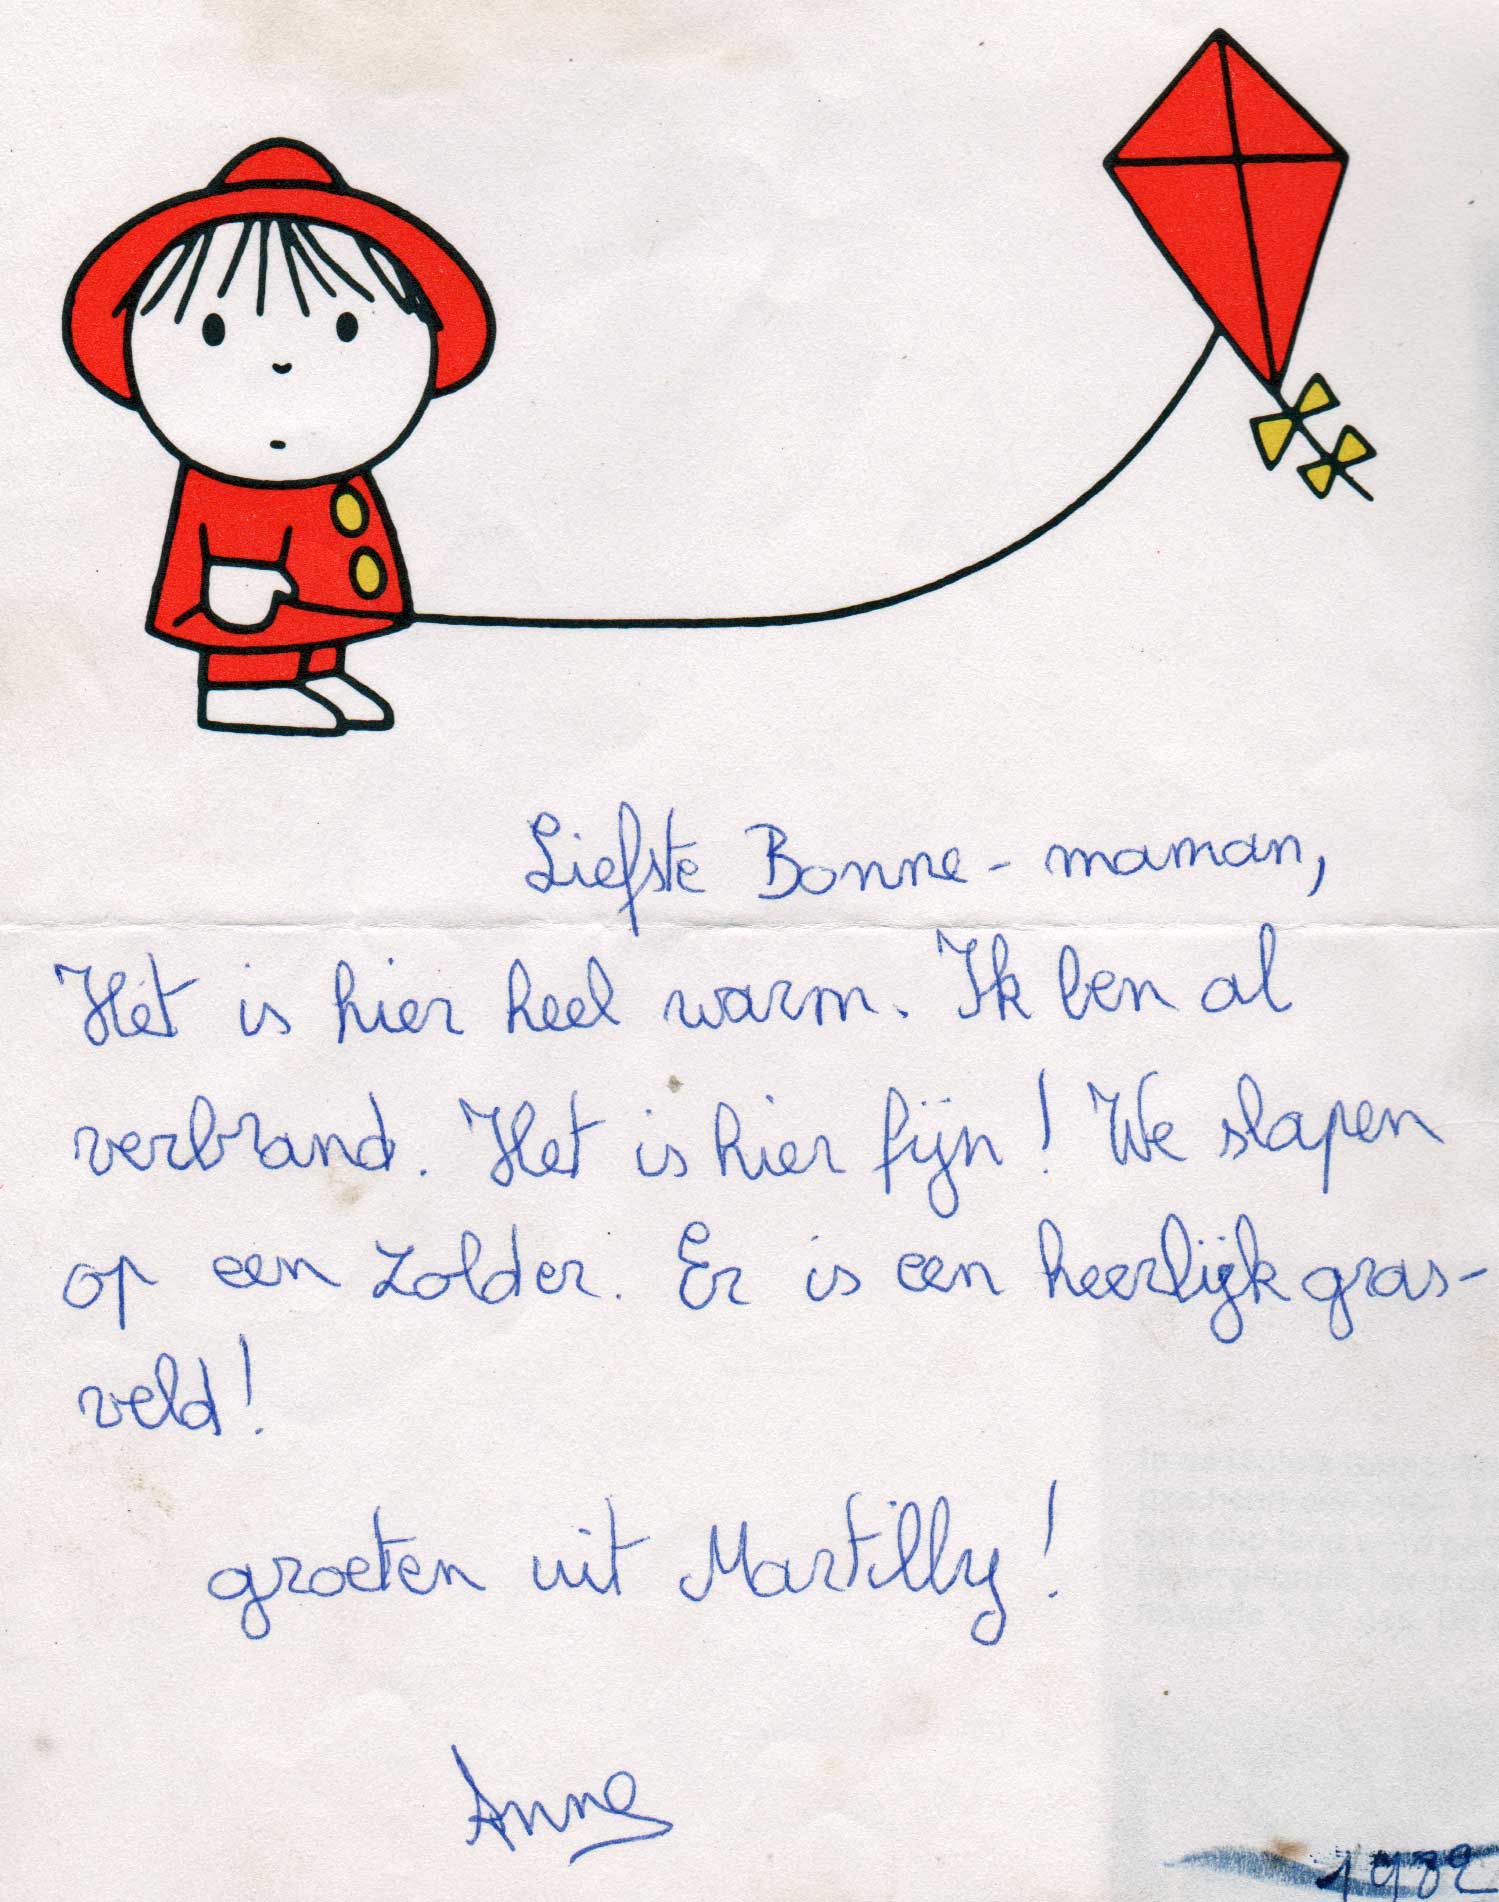 Liefste Bonne-maman,
Het is hier heel warm. Ik ben al
verbrand. Het is hier fijn! We slapen
op een zolder. Er is een heerlijk gras-
veld!
groeten uit Martilly!
Anne
1982